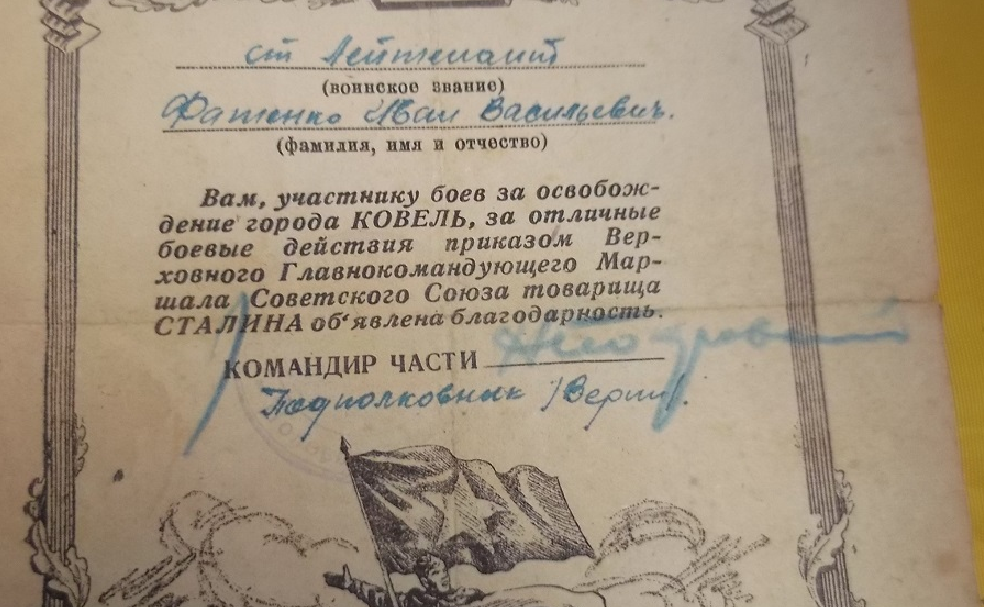 ст Лейтенант
(воинское звание)
Фатенко Иван Васильевич.
(фамилия, имя и отчество)
Вам, участнику боев за освобож-
дение города КОВЕЛЬ, за отличные
боевые действия приказом Вер-
ховного Главнокомандующего Мар-
шала Советского Союза товарища
СТАЛИНА об‘явлена благодарность.
КОМАНДИР ЧАСТИ
Подполковник